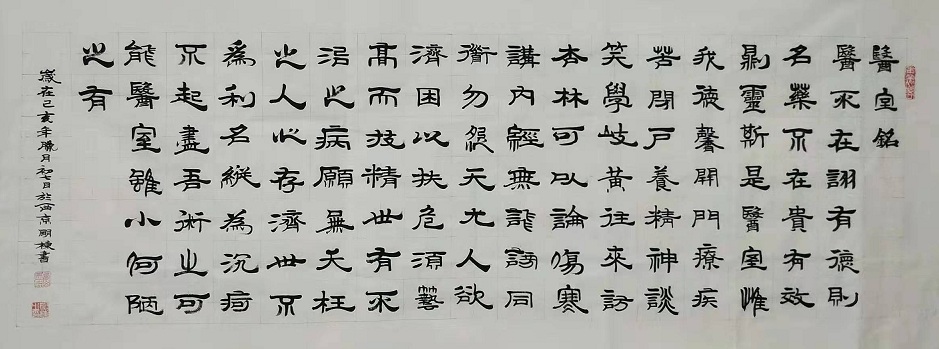 醫室銘
醫不在詡有德則
名藥不在貴有效
則靈斯是醫室惟
我德馨開門療疾
苦閉戶養精神談
笑學岐黃往來訪
杏林可以論傷寒
講內經無謗同
衡勿怨天尤人欲
濟困以扶危須藝
高而技精世有不
治之病願無夭枉
之人心存濟世不
為利名縱為沉疴
不起盡吾術之可
能醫室雖小何陋
之有
歲在己亥年臘月初七日於西京書